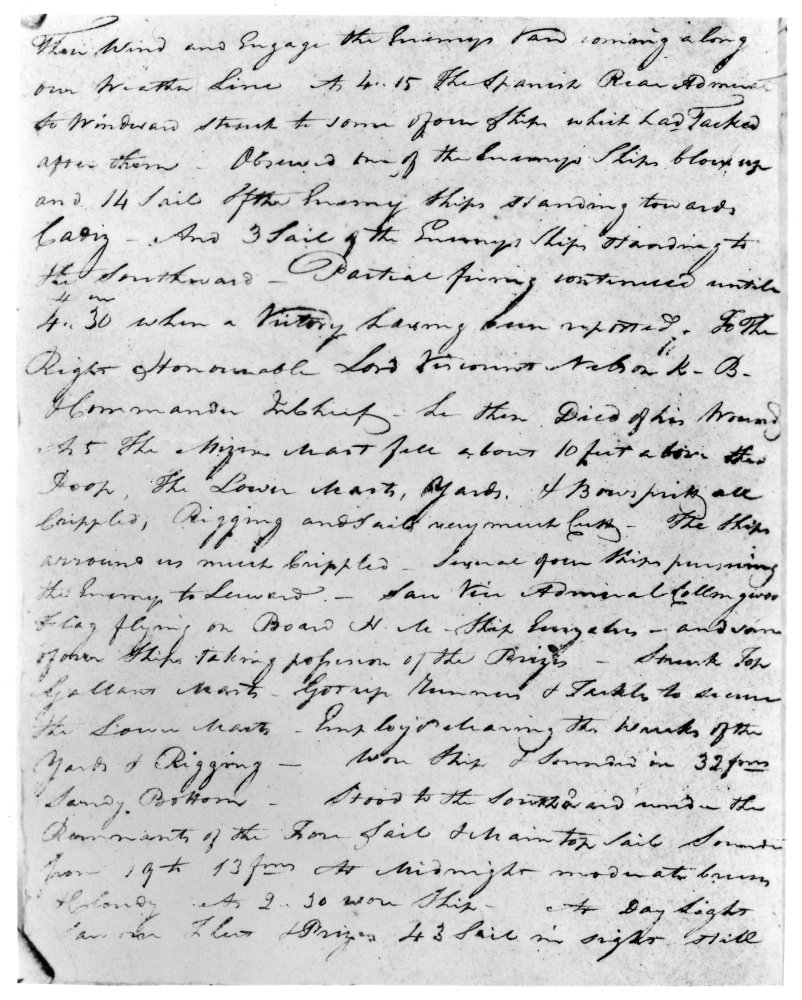 their Wind and Engage the Enemys Van coming along
our Weather Line At 4.. 15 The Spanish Rear Admiral
to Windward struck to some of our Ships which had Tacked
after them - Observed one of the Enemys Ships blow up
and 14 Sail of the Enemy Ships standing towards
Cadiz - And 3 Sail of the Enemys Ships standing to
the Southward - Partial firing continued untill
4.. 30 when a Victory having been reported. To The
Right Honourable Lord Viscount Nelson K - B -
Commander In Chief - he then Died of his Wound
At 5 The Mizen Mast fell about 10 feet above the
Poop, The Lower Masts, Yards, & Bowspritt all
Crippled, Rigging and Sails very much Cutt - The Ships
arround us much Crippled - Several of our Ships pursuing
the Enemy to Leeward. - Saw Vice Admiral Collingwoo
Flag flying on Board H. M - Ship Euryalus - and some
of our Ships taking possession of the Prizes - Struck Top
Gallant Masts - Got up Runners & Tackles to secure
the Lower Masts - Employ'd clearing the Wrecks of the
Yards & Rigging - Wore Ship & Sounded in 32 fms
Sandy Bottom - Stood to the Southward under the
Remnants of the Fore Sail & Main top Sail Sounded
from 19 to 13 fms At Midnight moderate breezes
& Cloudy At 2.. 30 wore Ship - At Day Light
saw our Fleet & Prizes 43 Sail in sight still